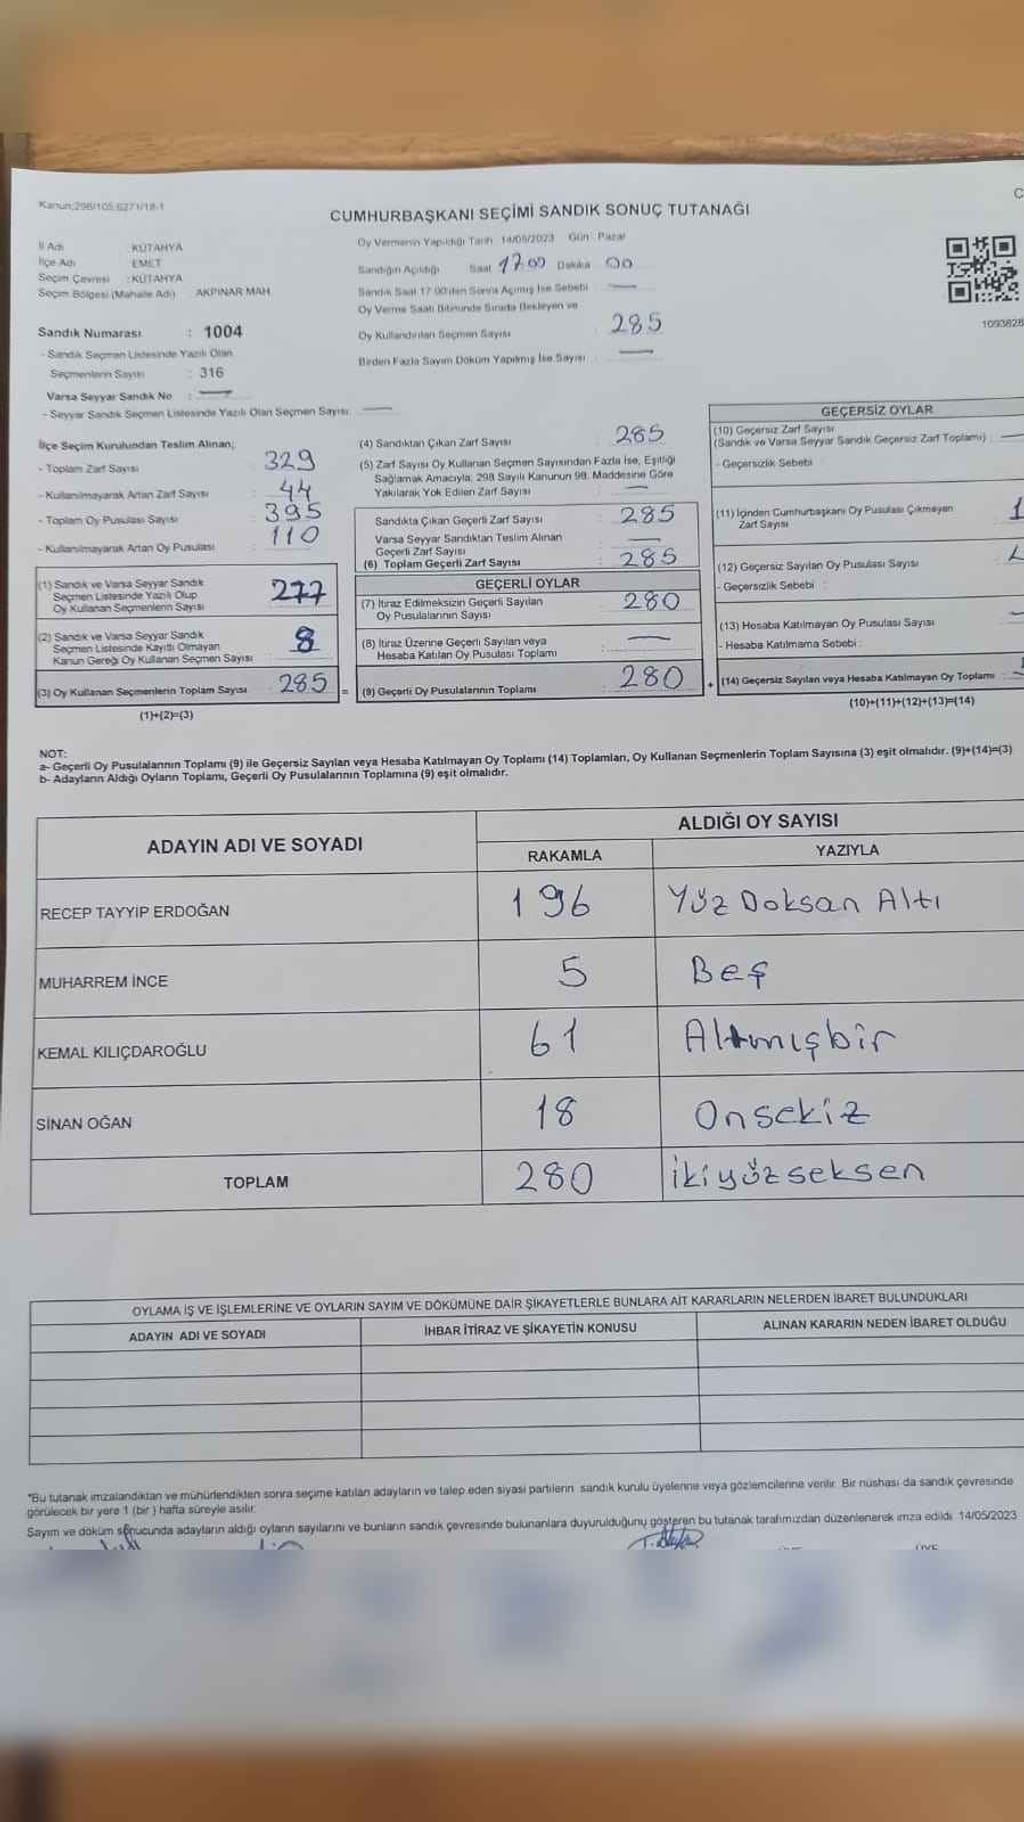 Kanun;298/105,6271/18-1
C
CUMHURBAŞKANI SEÇİMİ SANDIK SONUÇ TUTANAĞI
İl Adı KÜTAHYA
İlçe Adı EMET
Seçim Çevresi : KÜTAHYA
Seçim Bölgesi (Mahalle Adı) AKPINAR MAH.
Oy Vermenin Yapıldığı Tarih 14/05/2023 Gün : Pazar
Sandığın Açıldığı Saat 17.00 Dakika 00
Sandık Saat 17.00'den Sonra Açılmış İse Sebebi
Oy Verme Saati Bitiminde Sırada Bekleyen ve
Oy Kullandırılan Seçmen Sayısı 285
Birden Fazla Sayım Döküm Yapılmış İse Sayısı
1093828
Sandık Numarası : 1004
- Sandık Seçmen Listesinde Yazılı Olan
Seçmenlerin Sayısı : 316
Varsa Seyyar Sandık No :
- Seyyar Sandık Seçmen Listesinde Yazılı Olan Seçmen Sayısı
İlçe Seçim Kurulundan Teslim Alınan;
- Toplam Zarf Sayısı 329
- Kullanılmayarak Artan Zarf Sayısı 44
- Toplam Oy Pusulası Sayısı 395
- Kullanılmayarak Artan Oy Pusulası 110
(1) Sandık ve Varsa Seyyar Sandık
Seçmen Listesinde Yazılı Olup
Oy Kullanan Seçmenlerin Sayısı 277
(2) Sandık ve Varsa Seyyar Sandık
Seçmen Listesinde Kayıtlı Olmayan
Kanun Gereği Oy Kullanan Seçmen Sayısı 8
(3) Oy Kullanan Seçmenlerin Toplam Sayısı 285 =
(1)+(2)=(3)
(4) Sandıktan Çıkan Zarf Sayısı 285
(5) Zarf Sayısı Oy Kullanan Seçmen Sayısından Fazla İse, Eşitliği
Sağlamak Amacıyla; 298 Sayılı Kanunun 98. Maddesine Göre
Yakılarak Yok Edilen Zarf Sayısı
Sandıkta Çıkan Geçerli Zarf Sayısı : 285
Varsa Seyyar Sandıktan Teslim Alınan
Geçerli Zarf Sayısı
(6) Toplam Geçerli Zarf Sayısı : 285
GEÇERLİ OYLAR
(7) İtiraz Edilmeksizin Geçerli Sayılan
Oy Pusulalarının Sayısı 280
(8) İtiraz Üzerine Geçerli Sayılan veya
Hesaba Katılan Oy Pusulası Toplamı
(9) Geçerli Oy Pusulalarının Toplamı : 280 +
GEÇERSİZ OYLAR
(10) Geçersiz Zarf Sayısı
(Sandık ve Varsa Seyyar Sandık Geçersiz Zarf Toplamı) :
- Geçersizlik Sebebi
(11) İçinden Cumhurbaşkanı Oy Pusulası Çıkmayan
Zarf Sayısı 1
(12) Geçersiz Sayılan Oy Pusulası Sayısı
- Geçersizlik Sebebi :
(13) Hesaba Katılmayan Oy Pusulası Sayısı
- Hesaba Katılmama Sebebi :
(14) Geçersiz Sayılan veya Hesaba Katılmayan Oy Toplamı
(10)+(11)+(12)+(13)=(14)
NOT:
a- Geçerli Oy Pusulalarının Toplamı (9) ile Geçersiz Sayılan veya Hesaba Katılmayan Oy Toplamı (14) Toplamları, Oy Kullanan Seçmenlerin Toplam Sayısına (3) eşit olmalıdır. (9)+(14)=(3)
b- Adayların Aldığı Oyların Toplamı, Geçerli Oy Pusulalarının Toplamına (9) eşit olmalıdır.
ADAYIN ADI VE SOYADI
ALDIĞI OY SAYISI
RAKAMLA YAZIYLA
RECEP TAYYİP ERDOĞAN 196 Yüz Doksan Altı
MUHARREM İNCE 5 Beş
KEMAL KILIÇDAROĞLU 61 Altmışbir
SİNAN OĞAN 18 Onsekiz
TOPLAM 280 İkiyüzseksen
OYLAMA İŞ VE İŞLEMLERİNE VE OYLARIN SAYIM VE DÖKÜMÜNE DAİR ŞİKAYETLERLE BUNLARA AİT KARARLARIN NELERDEN İBARET BULUNDUKLARI
ADAYIN ADI VE SOYADI İHBAR İTİRAZ VE ŞİKAYETİN KONUSU ALINAN KARARIN NEDEN İBARET OLDUĞU
*Bu tutanak imzalandıktan ve mühürlendikten sonra seçime katılan adayların ve talep eden siyasi partilerin sandık kurulu üyelerine veya gözlemcilerine verilir. Bir nüshası da sandık çevresinde
görülecek bir yere 1 (bir ) hafta süreyle asılır.
Sayım ve döküm sonucunda adayların aldığı oyların sayılarını ve bunların sandık çevresinde bulunanlara duyurulduğunu gösteren bu tutanak tarafımızdan düzenlenerek imza edildi. 14/05/2023
ÜYE